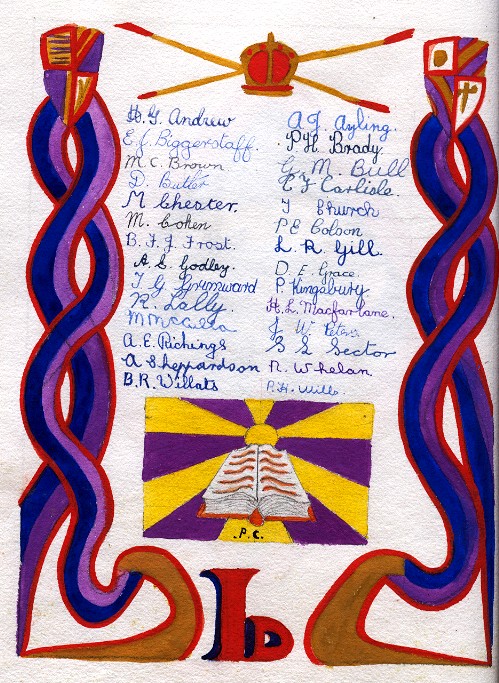 H. G. Andrew
A. J. Ayling.
E. C. Biggerstaff.
P. H. Brady.
M. C. Brown
G. M. Bull
D. Butler
C. J. Carlisle.
M Chester.
J Church
M. Cohen
P E Colson
B. F. J. Frost.
L. R. Gill.
A. S. Godley.
D. E. Grace
J G
P. Kingsbury
R. Lally.
H. L. Macfarlane.
J. W. Peters
A. E. Richings
S L Sector
A Sheppardson
R. Whelan
B. R. Willats
P. H. Wills
P. C.